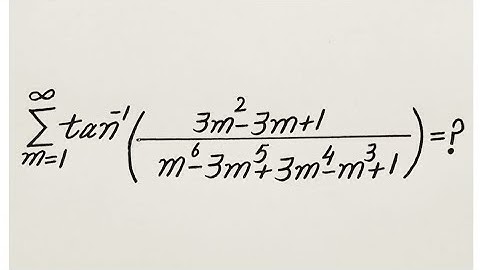 \sum_{m=1}^{\infty} tan^{-1}\left(\frac{3m^2-3m+1}{m^6-3m^5+3m^4-m^3+1}\right)=?